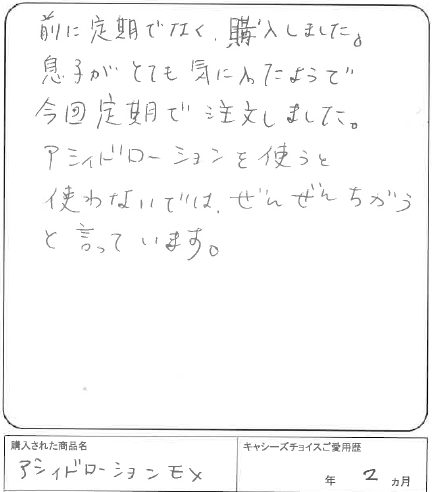 前に定期でなく、購入しました。
息子がとても気に入ったようで
今回定期で注文しました。
アシィドローションを使うと
使わないでは、ぜんぜんちがう
と言っています。
購入された商品名
アシィドローションEX
キャシーズチョイスご愛用歴
年 2 ヵ月